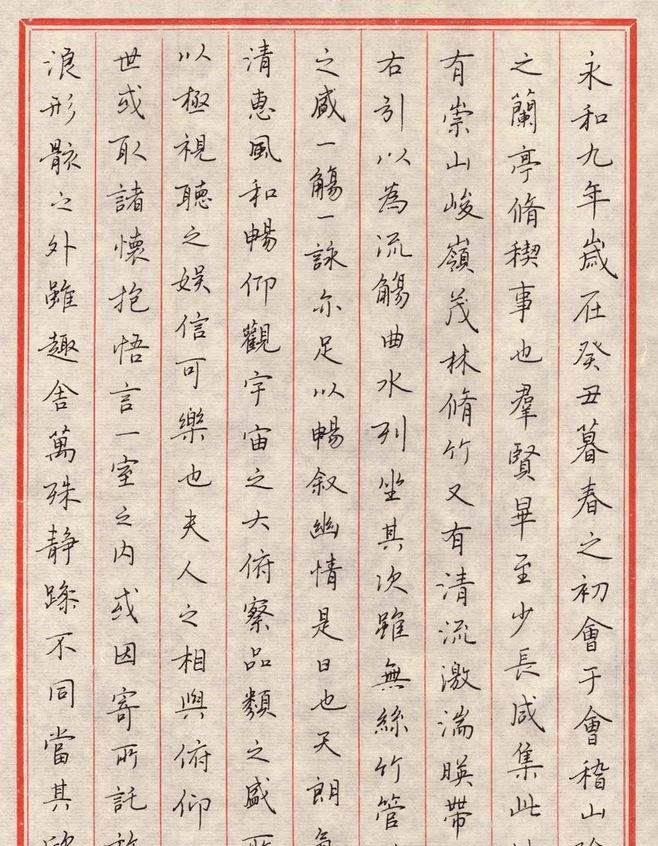 永和九年歲在癸丑暮春之初會于會稽山
之蘭亭脩稧事也羣賢畢至少長咸集此
有崇山峻嶺茂林脩竹又有清流激湍暎帶
右引以為流觴曲水列坐其次雖無絲竹管
之盛一觴一詠亦足以暢叙幽情是日也天朗
清惠風和暢仰觀宇宙之大俯察品類之盛
以極視聽之娛信可樂也夫人之相與俯仰
世或取諸懷抱悟言一室之内或因寄所託
浪形骸之外雖趣舍萬殊静躁不同當其